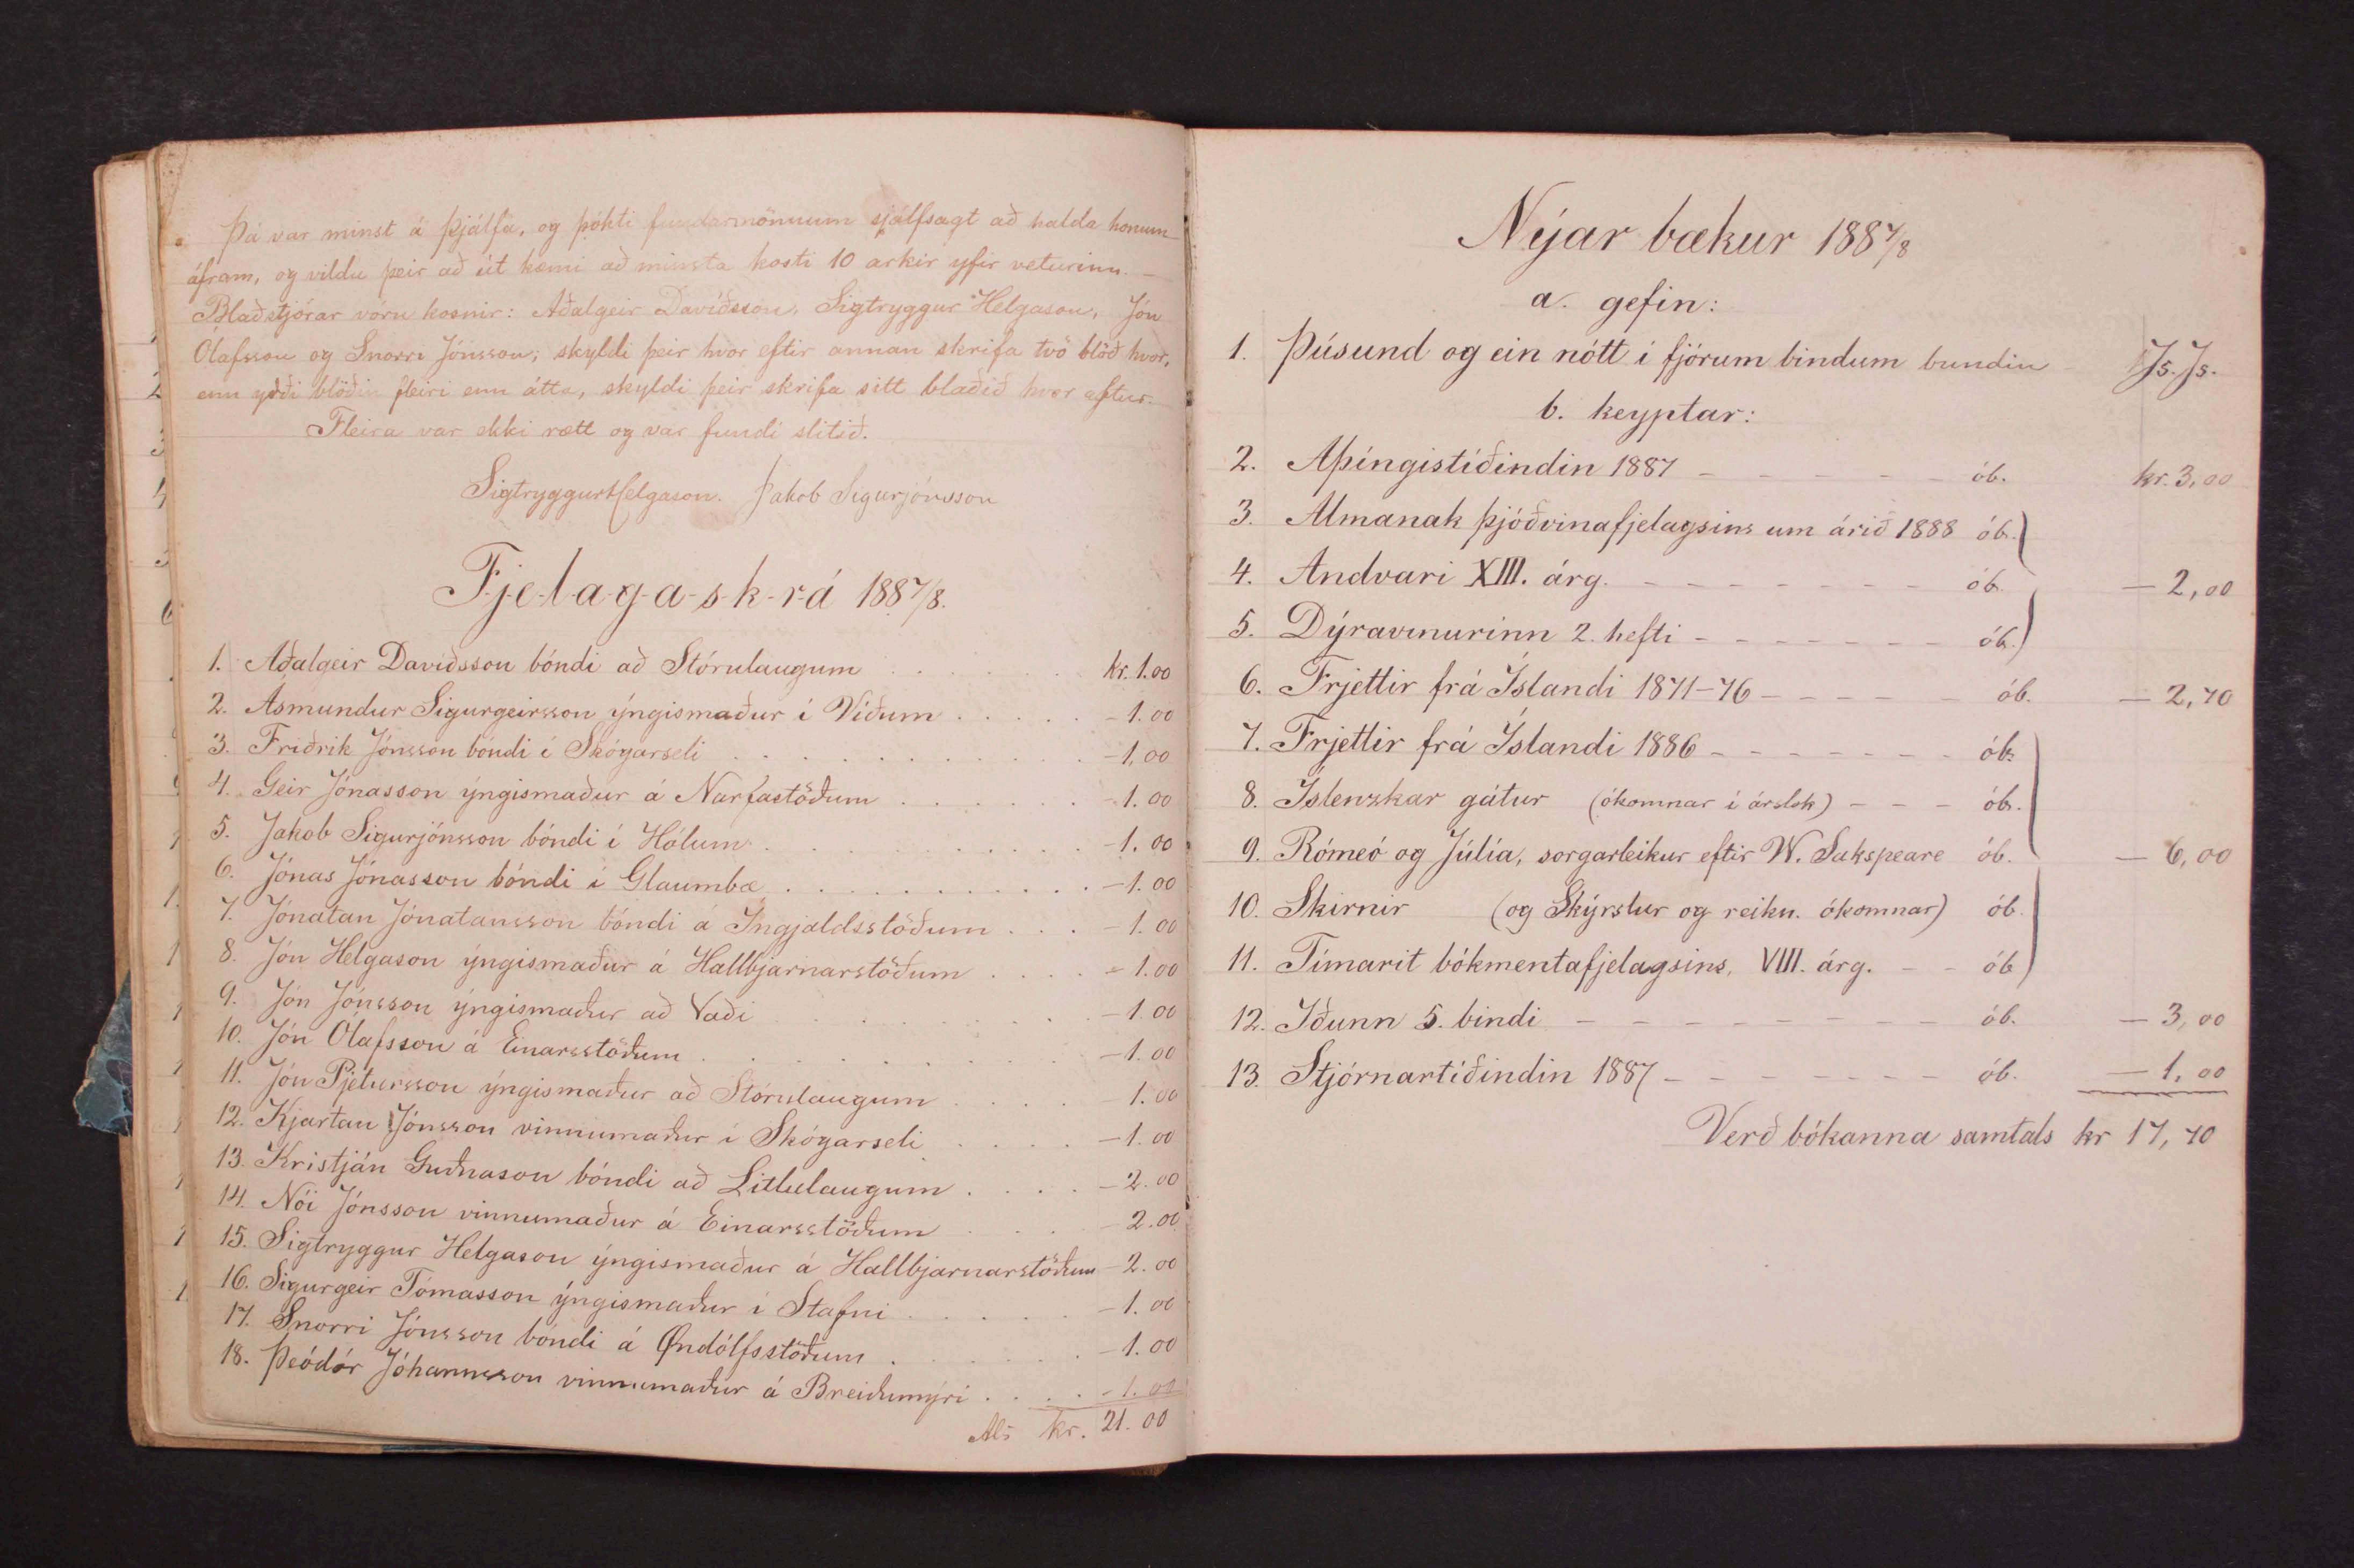 Þá var minst á Þjálfa, og þókti fundarmönnum sjálfsagt að halda honum
áfram, og vildu þeir að út kæmi að minsta kosti 10 arkir yfir veturinn. –
Blaðstjórar vóru kosnir: Aðalgeir Davíðsson, Sigtryggur Helgason, Jón
Ólafsson og Snorri Jónsson; skyldi þeir hvor eftir annan skrifa tvö blöð hvor,
enn yrði blöðin fleiri enn átta, skyldi þeir skrifa sitt blaðið hvor aftur.
Fleira var ekki rætt og var fundi slitið.
Sigtryggur Helgason. Jakob Sigurjónsson
F-j-e-l-a-g-a-s-k-r-á 1887/8.
1. Aðalgeir Davíðsson bóndi að Stórulaugum . . . . . kr. 1.00
2. Ásmundur Sigurgeirsson ýngismaður í Víðum . . . . . – 1.00
3. Friðrik Jónsson bóndi í Skógarseli . . . . . . . . . – 1,00
4. Geir Jónasson ýngismaður á Narfastöðum . . . . . . – 1.00
5. Jakob Sigurjónsson bóndi í Hólum . . . . . . . . . – 1.00
6. Jónas Jónasson bóndi í Glaumbæ . . . . . . . . . . – 1.00
7. Jónatan Jónatansson bóndi á Íngjaldsstöðum . . . – 1.00
8. Jón Helgason ýngismaður á Hallbjarnarstöðum . . . . – 1.00
9. Jón Jónsson ýngismaður að Vaði . . . . . . . . – 1.00
10. Jón Ólafsson á Einarsstöðum . . . . . . . . . – 1.00
11. Jón Pjetursson ýngismaður að Stórulaugum . . . . – 1.00
12. Kjartan Jónsson vinnumaður í Skógarseli . . . . – 1.00
13. Kristján Guðnason bóndi að Litlulaugum . . . . – 2.00
14. Nói Jónsson vinnumaður á Einarsstöðum . . . – 2.00
15. Sigtryggur Helgason ýngismaður á Hallbjarnarstöðum – 2.00
16. Sigurgeir Tómasson ýngismaður í Stafni . . . . . – 1.00
17. Snorri Jónsson bóndi á Øndólfsstöðum . . . . . . – 1.00
18. Þeódór Jóhannsson vinnumaður á Breiðumýri . . . . – 1.00
Als kr. 21.00
Nýar bækur 1887/8
a. gefin:
1. Þúsund og ein nótt í fjórum bindum bundin Js. Js.
b. keyptar:
2. Alþíngistíðindin 1887 – – – – – – ób. kr. 3,00
3. Almanak þjóðvinafjelagsins um árið 1888 ób.
4. Andvari XIII. árg. – – – – – – – – ób. – 2,00
5. Dýravinurinn 2. hefti – – – – – – – ób.
6. Frjettir frá Íslandi 1871–76 – – – – – ób. – 2,70
7. Frjettir frá Íslandi 1886 – – – – – – – ób.
8. Íslenzkar gátur (ókomnar í árslok) – – – ób.
9. Rómeó og Júlía, sorgarleikur eftir W. Sakspeare ób. – 6,00
10. Skírnir (og Skýrslur og reikn. ókomnar) ób.
11. Tímarit bókmentafjelagsins, VIII. árg. – – ób
12. Iðunn 5. bindi – – – – – – – – ób. – 3,00
13. Stjórnartíðindin 1887 – – – – – – – ób. – 1,00
Verð bókanna samtals kr 17,70